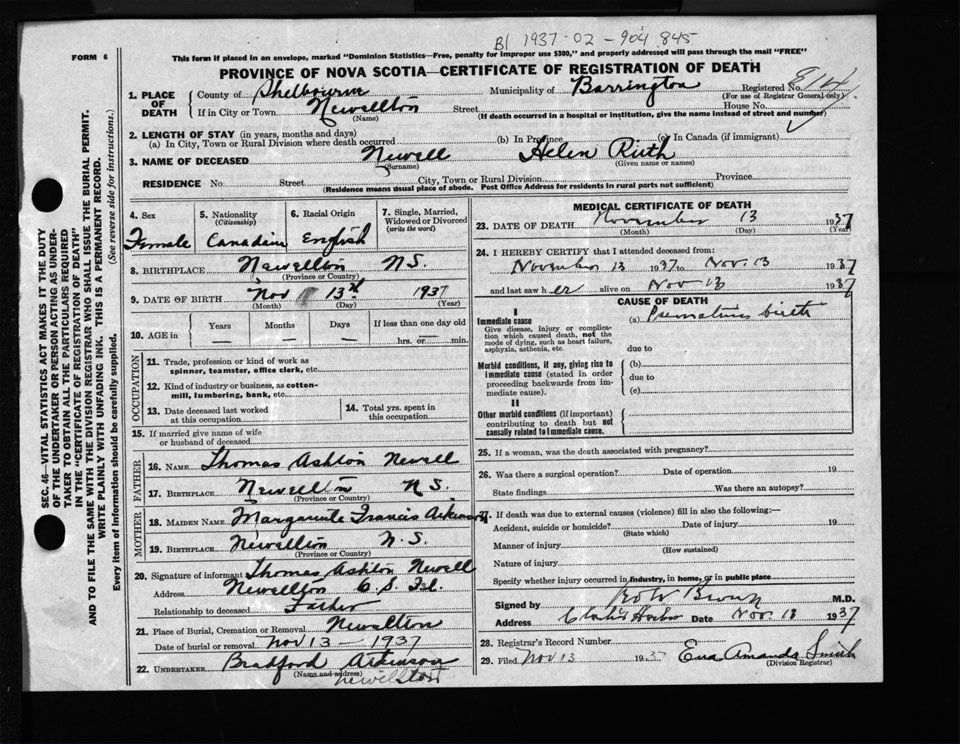 B1 1937-02-904 845
FORM 6
This form if placed in an envelope, marked "Dominion Statistics—Free, penalty for improper use $300," and properly addressed will pass through the mail "FREE"
PROVINCE OF NOVA SCOTIA—CERTIFICATE OF REGISTRATION OF DEATH
SEC. 46—VITAL STATISTICS ACT MAKES IT THE DUTY
OF THE UNDERTAKER OR PERSON ACTING AS UNDER-
TAKER TO OBTAIN ALL THE PARTICULARS REQUIRED
IN THE "CERTIFICATE OF REGISTRATION OF DEATH"
AND TO FILE THE SAME WITH THE DIVISION REGISTRAR WHO SHALL ISSUE THE BURIAL PERMIT.
WRITE PLAINLY WITH UNFADING INK. THIS IS A PERMANENT RECORD.
Every item of information should be carefully supplied. (See reverse side for instructions.)
1. PLACE OF DEATH County of Shelbourne Municipality of Barrington Registered No.
(For use of Registrar General only)
If in City or Town Newellton Street House No.
(Name) (If death occurred in a hospital or institution, give the name instead of street and number)
2. LENGTH OF STAY (in years, months and days)
(a) In City, Town or Rural Division where death occurred (b) In Province (c) In Canada (if immigrant)
3. NAME OF DECEASED Newell Helen Ruth
(Surname) (Given name or names)
RESIDENCE No. Street City, Town or Rural Division Province
(Residence means usual place of abode. Post Office Address for residents in rural parts not sufficient)
4. Sex 5. Nationality (Citizenship) 6. Racial Origin 7. Single, Married, Widowed or Divorced (write the word)
Female Canadian English
8. BIRTHPLACE Newellton N.S.
(Province or Country)
9. DATE OF BIRTH Nov 13th 1937
(Month) (Day) (Year)
10. AGE in Years Months Days If less than one day old
— — — hrs. or min.
OCCUPATION
11. Trade, profession or kind of work as
spinner, teamster, office clerk, etc.
12. Kind of industry or business, as cotton-
mill, lumbering, bank, etc.
13. Date deceased last worked
at this occupation
14. Total yrs. spent in
this occupation
15. If married give name of wife
or husband of deceased
FATHER
16. NAME Thomas Ashton Newell
17. BIRTHPLACE Newellton N.S.
(Province or Country)
MOTHER
18. MAIDEN NAME Marguerite Francis Atkinson
19. BIRTHPLACE Newellton N.S.
(Province or Country)
20. Signature of informant Thomas Ashton Newell
Address Newellton C.S. Isl
Relationship to deceased Father
21. Place of Burial, Cremation or Removal Newellton
Date of burial or removal Nov 13 - 1937
22. UNDERTAKER Bradford Atkinson
(Name and address)
Newellton
MEDICAL CERTIFICATE OF DEATH
23. DATE OF DEATH November 13 1937
(Month) (Day) (Year)
24. I HEREBY CERTIFY that I attended deceased from:
November 13 1937 to Nov. 13 1937
and last saw her alive on Nov 13 1937
CAUSE OF DEATH
I
Immediate cause (a) Premature birth
Give disease, injury or complica-
tion which caused death, not the
mode of dying, such as heart failure,
asphyxia, asthenia, etc. due to
Morbid conditions, if any, giving rise to (b)
immediate cause (stated in order due to
proceeding backwards from im-
mediate cause). (c)
II
Other morbid conditions (if important)
contributing to death but not
causally related to immediate cause.
25. If a woman, was the death associated with pregnancy?
26. Was there a surgical operation? Date of operation 19
State findings Was there an autopsy?
27. If death was due to external causes (violence) fill in also the following:—
Accident, suicide or homicide? Date of injury 19
(State which)
Manner of injury
(How sustained)
Nature of injury
Specify whether injury occurred in industry, in home, or in public place
Signed by Brown M.D.
Address Clarks Harbor Date Nov. 13 1937
28. Registrar's Record Number
29. Filed Nov 13 1937 Ena Amanda Smith
(Division Registrar)